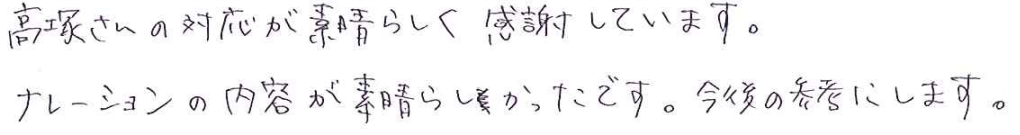 高塚さんの対応が素晴らしく感謝しています。
ナレーションの内容が素晴らしかったです。今後の参考にします。